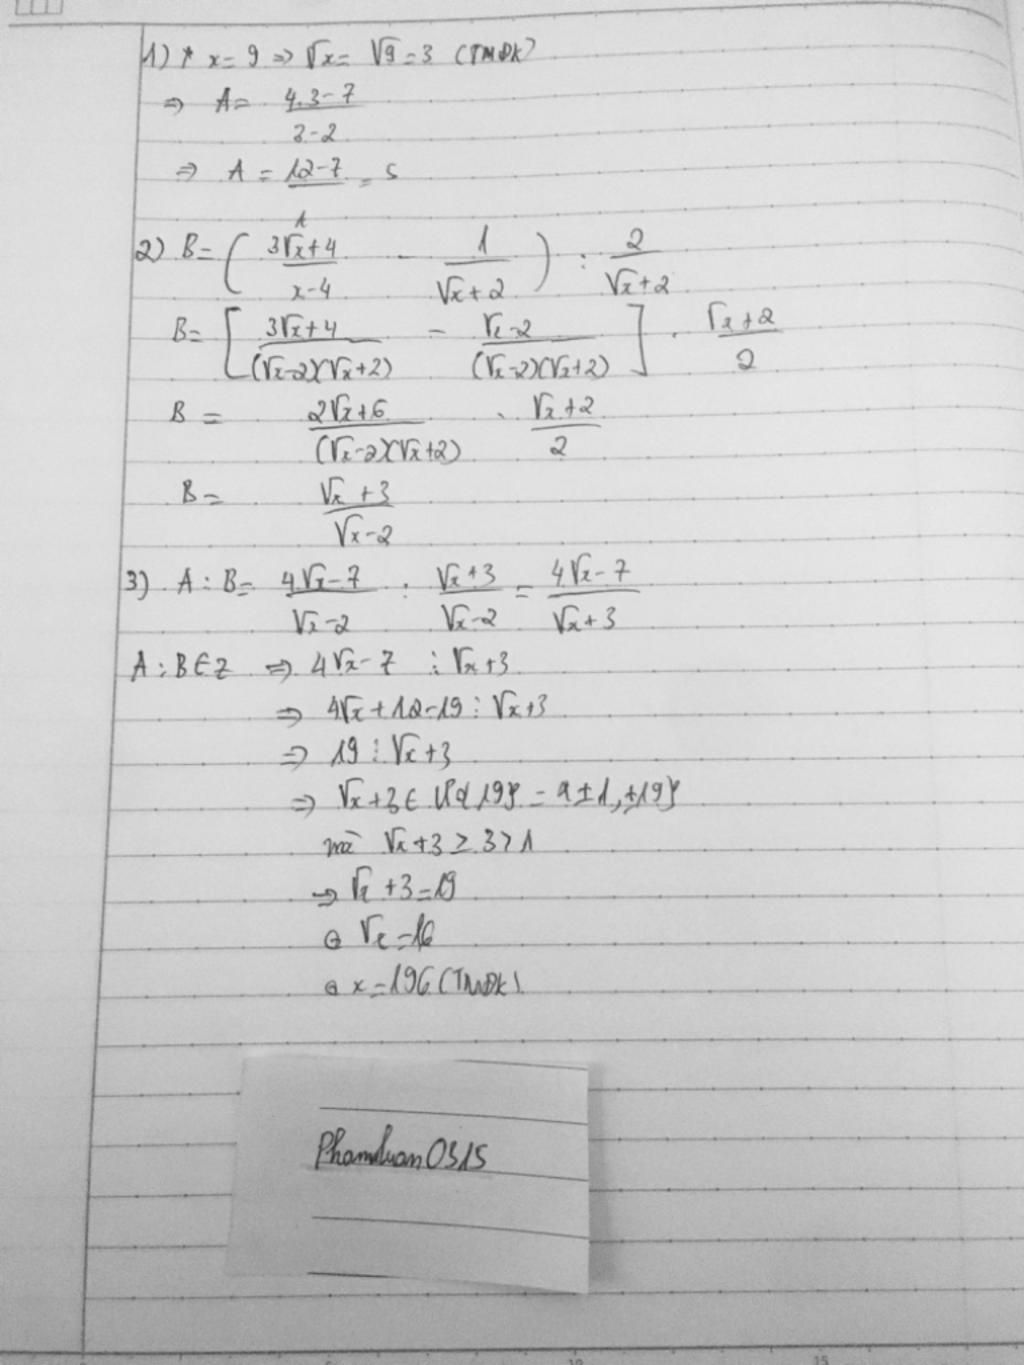 1) * x = 9 ⇒ √x = √9 = 3 (TMĐK)
⇒ A = (4.3-7)/(3-2)
⇒ A = (12-7)/1 = 5
2) B = ( (3√x+4)/(x-4) - 1/(√x+2) ) : 2/(√x+2)
B = [ (3√x+4)/((√x-2)(√x+2)) - (√x-2)/((√x-2)(√x+2)) ] . (√x+2)/2
B = (2√x+6)/((√x-2)(√x+2)) . (√x+2)/2
B = (√x+3)/(√x-2)
3) A : B = (4√x-7)/(√x-2) : (√x+3)/(√x-2) = (4√x-7)/(√x+3)
A : B ∈ Z ⇒ 4√x-7 ⋮ √x+3
⇒ 4√x+12-19 ⋮ √x+3
⇒ 19 ⋮ √x+3
⇒ √x+3 ∈ Ư{19} = {±1, ±19}
mà √x+3 ≥ 3 > 1
⇒ √x+3 = 19
⇔ √x = 16
⇔ x = 196 (TMĐK)
Phamluan0315